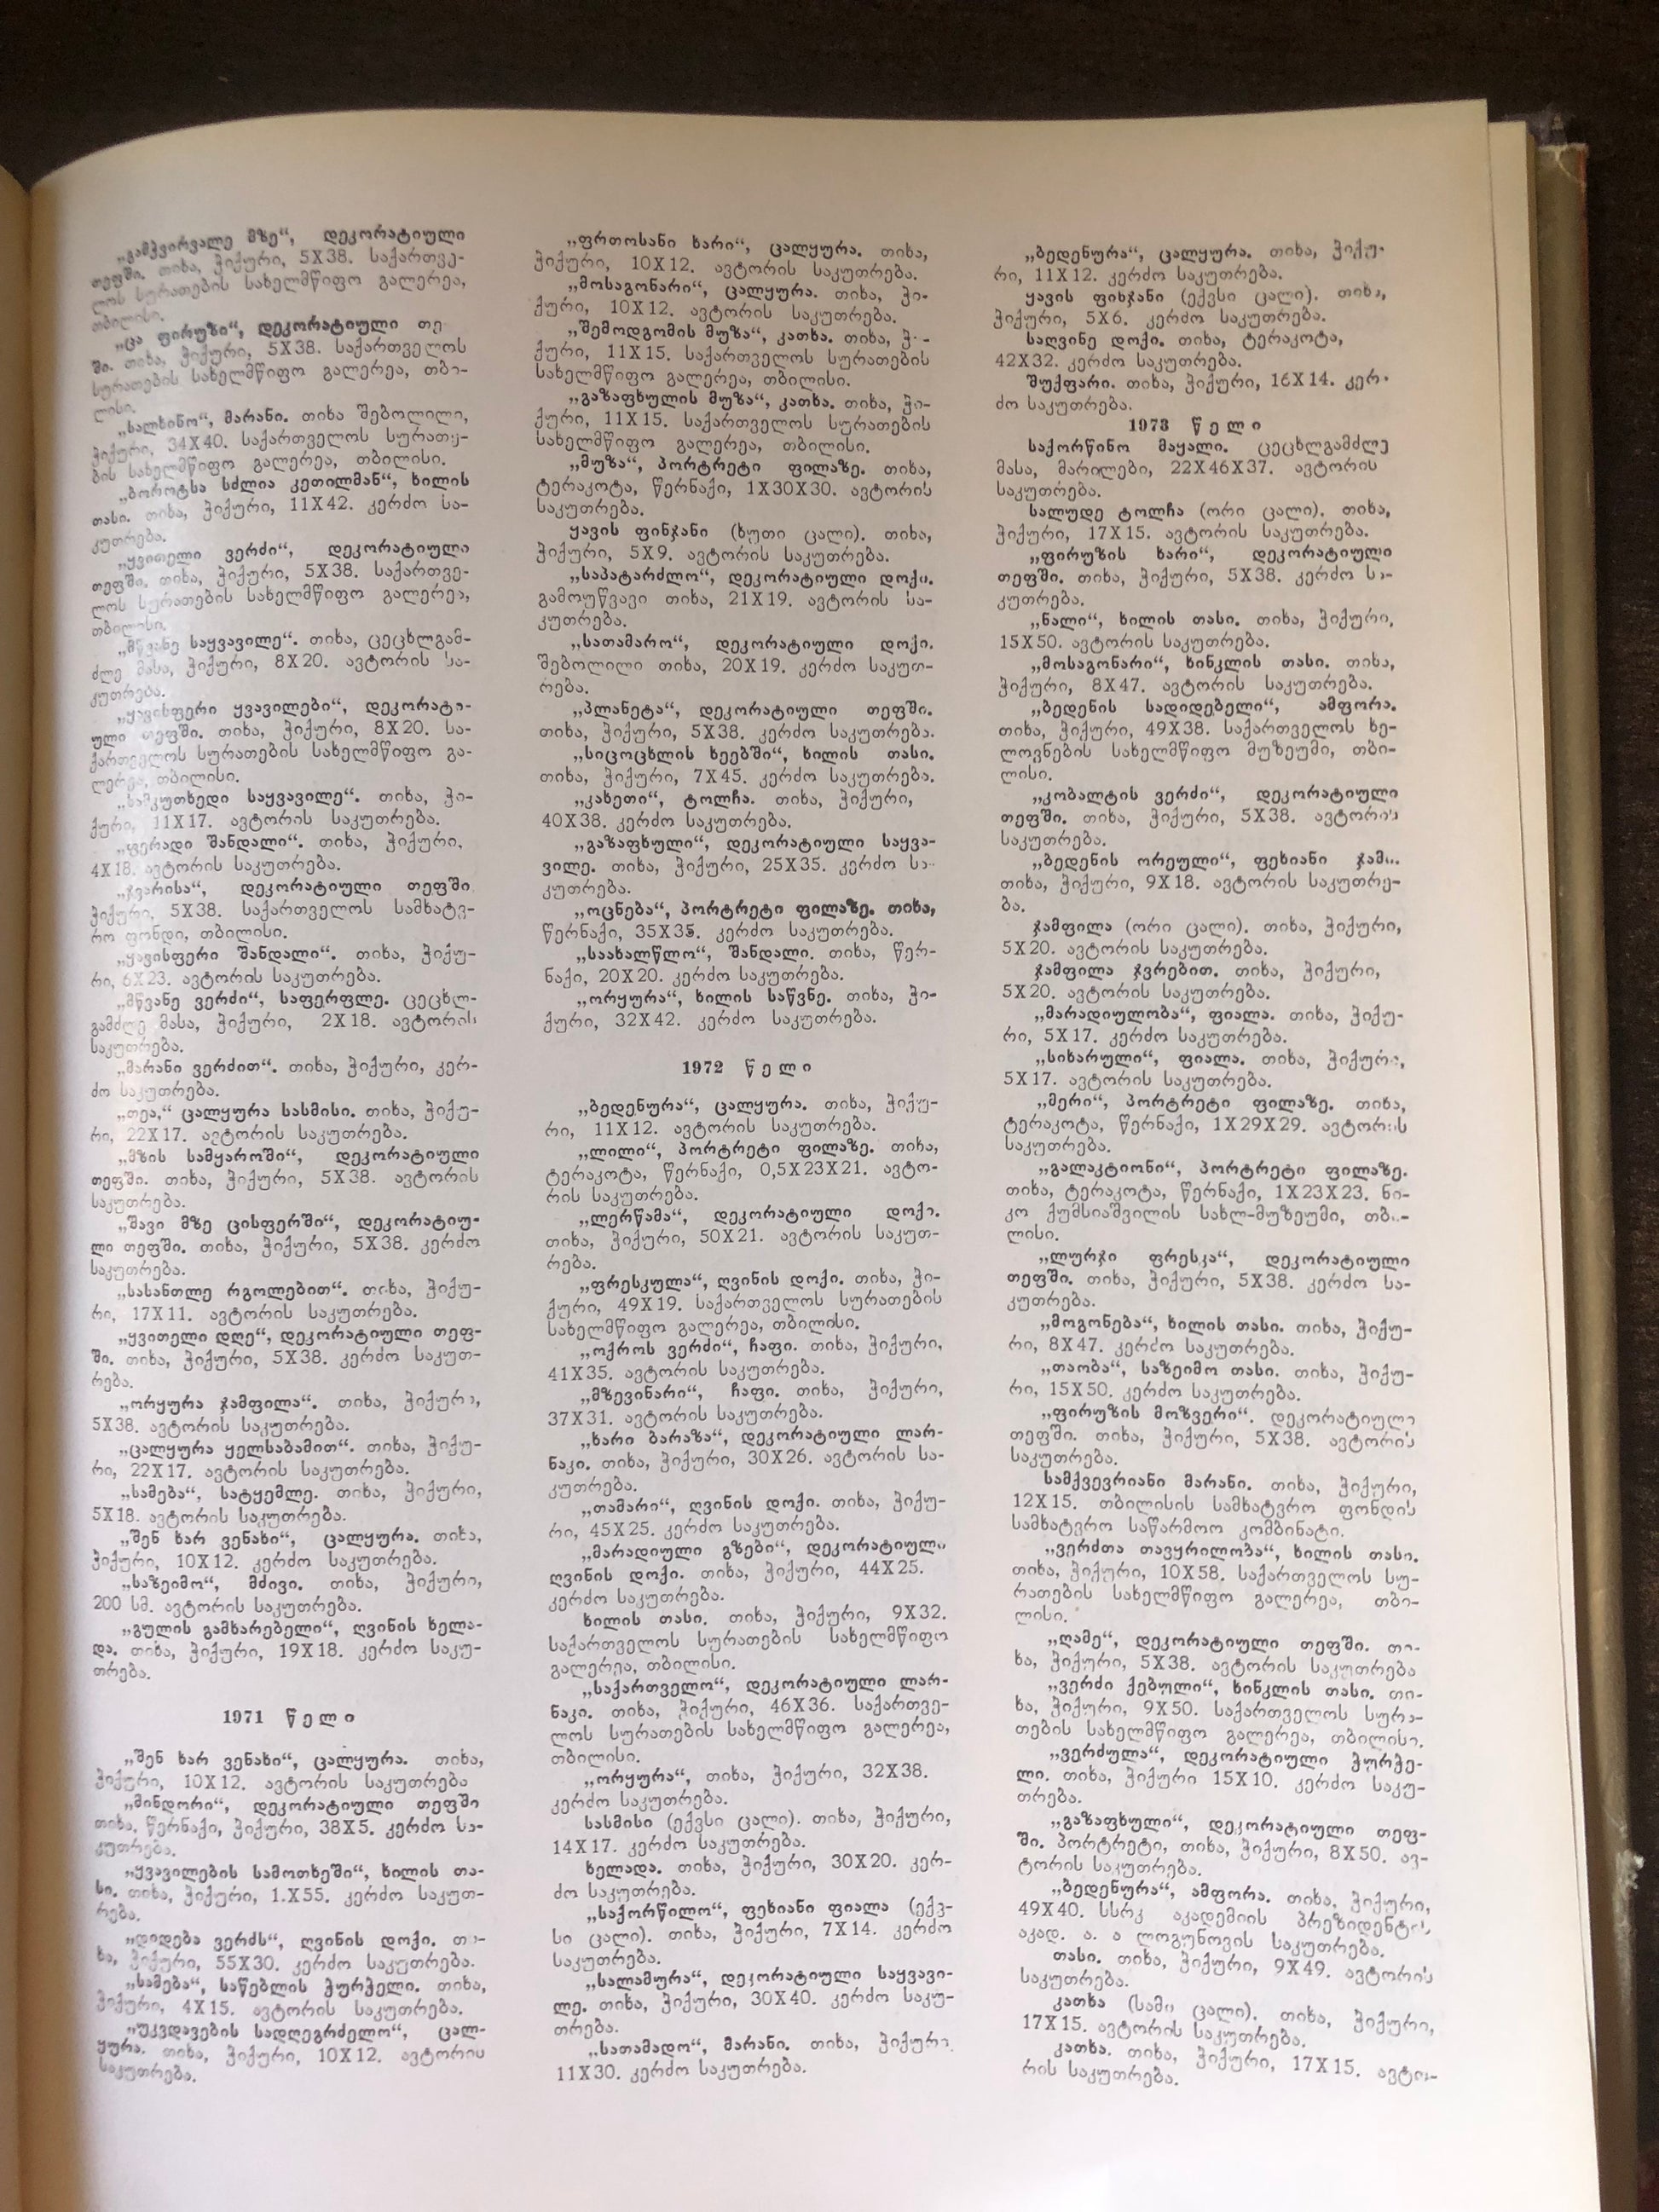 „გამჭვირვალე მზე“, დეკორატიული
თეფში. თიხა, ჭიქური, 5X38. საქართვე-
ლოს სურათების სახელმწიფო გალერეა,
თბილისი.
„ცა ფირუზი“, დეკორატიული თე
ში. თიხა, ჭიქური, 5X38. საქართველოს
სურათების სახელმწიფო გალერეა, თბი-
ლისი.
„სალხინო“, მარანი. თიხა შებოლილი,
ჭიქური, 34X40. საქართველოს სურათე-
ბის სახელმწიფო გალერეა, თბილისი.
„ბოროტსა სძლია კეთილმან“, ხილის
თასი. თიხა, ჭიქური, 11X42. კერძო სა-
კუთრება.
„ყვითელი ვერძი“, დეკორატიული
თეფში. თიხა, ჭიქური, 5X38. საქართვე-
ლოს სურათების სახელმწიფო გალერეა,
თბილისი.
„მწვანე საყვავილე“. თიხა, ცეცხლგამ-
ძლე მასა, ჭიქური, 8X20. ავტორის სა-
კუთრება.
„ყავისფერი ყვავილები“, დეკორატი-
ული თეფში. თიხა, ჭიქური, 8X20. სა-
ქართველოს სურათების სახელმწიფო გა-
ლერეა, თბილისი.
„სამკუთხედი საყვავილე“. თიხა, ჭი-
ქური, 11X17. ავტორის საკუთრება.
„ფერადი შანდალი“. თიხა, ჭიქური,
4X18. ავტორის საკუთრება.
„ჯვარისა“, დეკორატიული თეფში
ჭიქური, 5X38. საქართველოს სამხატვ-
რო ფონდი, თბილისი.
„ყავისფერი შანდალი“. თიხა, ჭიქუ-
რი, 6X23. ავტორის საკუთრება.
„მწვანე ვერძი“, საფერფლე. ცეცხლ-
გამძლე მასა, ჭიქური, 2X18. ავტორის
საკუთრება.
„მარანი ვერძით“. თიხა, ჭიქური, კერ-
ძო საკუთრება.
„თეა,“ ცალყურა სასმისი. თიხა, ჭიქუ-
რი, 22X17. ავტორის საკუთრება.
„მზის სამყაროში“, დეკორატიული
თეფში. თიხა, ჭიქური, 5X38. ავტორის
საკუთრება.
„შავი მზე ცისფერში“, დეკორატიუ-
ლი თეფში. თიხა, ჭიქური, 5X38. კერძო
საკუთრება.
„სასანთლე რგოლებით“. თიხა, ჭიქუ-
რი, 17X11. ავტორის საკუთრება.
„ყვითელი დღე“, დეკორატიული თეფ-
ში. თიხა, ჭიქური, 5X38. კერძო საკუთ-
რება.
„ორყურა ჯამფილა“. თიხა, ჭიქური,
5X38. ავტორის საკუთრება.
„ცალყურა ყელსაბამით“. თიხა, ჭიქუ-
რი, 22X17. ავტორის საკუთრება.
„სამება“, სატყემლე. თიხა, ჭიქური,
5X18. ავტორის საკუთრება.
„შენ ხარ ვენახი“, ცალყურა. თიხა,
ჭიქური, 10X12. კერძო საკუთრება.
„საზეიმო“, მძივი. თიხა, ჭიქური,
200 სმ. ავტორის საკუთრება.
„გულის გამხარებელი“, ღვინის ხელა-
და. თიხა, ჭიქური, 19X18. კერძო საკუ-
თრება.
1971 წელი
„შენ ხარ ვენახი“, ცალყურა. თიხა,
ჭიქური, 10X12. ავტორის საკუთრება
„მინდორი“, დეკორატიული თეფში
თიხა, წერნაქი, ჭიქური, 38X5. კერძო სა-
კუთრება.
„ყვავილების სამოთხეში“, ხილის თა-
სი. თიხა, ჭიქური, 1.X55. კერძო საკუთ-
რება.
„დიდება ვერძს“, ღვინის დოქი. თი-
ხა, ჭიქური, 55X30. კერძო საკუთრება.
„სამება“, საწებლის ჭურჭელი. თიხა,
ჭიქური, 4X15. ავტორის საკუთრება.
„უკვდავების სადღეგრძელო“, ცალ-
ყურა. თიხა, ჭიქური, 10X12. ავტორის
საკუთრება.
„ფრთოსანი ხარი“, ცალყურა. თიხა,
ჭიქური, 10X12. ავტორის საკუთრება.
„მოსაგონარი“, ცალყურა. თიხა, ჭი-
ქური, 10X12. ავტორის საკუთრება.
„შემოდგომის მუზა“, კათხა. თიხა, ჭი-
ქური, 11X15. საქართველოს სურათების
სახელმწიფო გალერეა, თბილისი.
„გაზაფხულის მუზა“, კათხა. თიხა, ჭი-
ქური, 11X15. საქართველოს სურათების
სახელმწიფო გალერეა, თბილისი.
„მუზა“, პორტრეტი ფილაზე. თიხა,
ტერაკოტა, წერნაქი, 1X30X30. ავტორის
საკუთრება.
ყავის ფინჯანი (ხუთი ცალი). თიხა,
ჭიქური, 5X9. ავტორის საკუთრება.
„საპატარძლო“, დეკორატიული დოქი.
გამოუწვავი თიხა, 21X19. ავტორის სა-
კუთრება.
„სათამარო“, დეკორატიული დოქი.
შებოლილი თიხა, 20X19. კერძო საკუთ-
რება.
„პლანეტა“, დეკორატიული თეფში.
თიხა, ჭიქური, 5X38. კერძო საკუთრება.
„სიცოცხლის ხეებში“, ხილის თასი.
თიხა, ჭიქური, 7X45. კერძო საკუთრება.
„კახეთი“, ტოლჩა. თიხა, ჭიქური,
40X38. კერძო საკუთრება.
„გაზაფხული“, დეკორატიული საყვა-
ვილე. თიხა, ჭიქური, 25X35. კერძო სა-
კუთრება.
„ოცნება“, პორტრეტი ფილაზე. თიხა,
წერნაქი, 35X35. კერძო საკუთრება.
„საახალწლო“, შანდალი. თიხა, წერ-
ნაქი, 20X20. კერძო საკუთრება.
„ორყურა“, ხილის საწვნე. თიხა, ჭი-
ქური, 32X42. კერძო საკუთრება.
1972 წელი
„ბედენურა“, ცალყურა. თიხა, ჭიქუ-
რი, 11X12. ავტორის საკუთრება.
„ლილი“, პორტრეტი ფილაზე. თიხა,
ტერაკოტა, წერნაქი, 0,5X23X21. ავტო-
რის საკუთრება.
„ლერწამა“, დეკორატიული დოქი.
თიხა, ჭიქური, 50X21. ავტორის საკუთ-
რება.
„ფრესკულა“, ღვინის დოქი. თიხა, ჭი-
ქური, 49X19. საქართველოს სურათების
სახელმწიფო გალერეა, თბილისი.
„ოქროს ვერძი“, ჩაფი. თიხა, ჭიქური,
41X35. ავტორის საკუთრება.
„მზევინარი“, ჩაფი. თიხა, ჭიქური,
37X31. ავტორის საკუთრება.
„ხარი ბარაზა“, დეკორატიული ლარ-
ნაკი. თიხა, ჭიქური, 30X26. ავტორის სა-
კუთრება.
„თამარი“, ღვინის დოქი. თიხა, ჭიქუ-
რი, 45X25. კერძო საკუთრება.
„მარადიული გზები“, დეკორატიული
ღვინის დოქი. თიხა, ჭიქური, 44X25.
კერძო საკუთრება.
ხილის თასი. თიხა, ჭიქური, 9X32.
საქართველოს სურათების სახელმწიფო
გალერეა, თბილისი.
„საქართველო“, დეკორატიული ლარ-
ნაკი. თიხა, ჭიქური, 46X36. საქართვე-
ლოს სურათების სახელმწიფო გალერეა,
თბილისი.
„ორყურა“, თიხა, ჭიქური, 32X38.
კერძო საკუთრება.
სასმისი (ექვსი ცალი). თიხა, ჭიქური,
14X17. კერძო საკუთრება.
ხელადა. თიხა, ჭიქური, 30X20. კერ-
ძო საკუთრება.
„საქორწილო“, ფეხიანი ფიალა (ექვ-
სი ცალი). თიხა, ჭიქური, 7X14. კერძო
საკუთრება.
„სალამურა“, დეკორატიული საყვავი-
ლე. თიხა, ჭიქური, 30X40. კერძო საკუ-
თრება.
„სათამადო“, მარანი. თიხა, ჭიქური,
11X30. კერძო საკუთრება.
„ბედენურა“, ცალყურა. თიხა, ჭიქუ-
რი, 11X12. კერძო საკუთრება.
ყავის ფინჯანი (ექვსი ცალი). თიხა,
ჭიქური, 5X6. კერძო საკუთრება.
საღვინე დოქი. თიხა, ტერაკოტა,
42X32. კერძო საკუთრება.
შუქფარი. თიხა, ჭიქური, 16X14. კერ-
ძო საკუთრება.
1973 წელი
საქორწინო მაყალი. ცეცხლგამძლე
მასა, მარილები, 22X46X37. ავტორის
საკუთრება.
სალუდე ტოლჩა (ორი ცალი). თიხა,
ჭიქური, 17X15. ავტორის საკუთრება.
„ფირუზის ხარი“, დეკორატიული
თეფში. თიხა, ჭიქური, 5X38. კერძო სა-
კუთრება.
„ნალი“, ხილის თასი. თიხა, ჭიქური,
15X50. ავტორის საკუთრება.
„მოსაგონარი“, ხინკლის თასი. თიხა,
ჭიქური, 8X47. ავტორის საკუთრება.
„ბედენის სადიდებელი“, ამფორა.
თიხა, ჭიქური, 49X38. საქართველოს ხე-
ლოვნების სახელმწიფო მუზეუმი, თბი-
ლისი.
„კობალტის ვერძი“, დეკორატიული
თეფში. თიხა, ჭიქური, 5X38. ავტორის
საკუთრება.
„ბედენის ორეული“, ფეხიანი ჯამი.
თიხა, ჭიქური, 9X18. ავტორის საკუთრე-
ბა.
ჯამფილა (ორი ცალი). თიხა, ჭიქური,
5X20. ავტორის საკუთრება.
ჯამფილა ჯვრებით. თიხა, ჭიქური,
5X20. ავტორის საკუთრება.
„მარადიულობა“, ფიალა. თიხა, ჭიქუ-
რი, 5X17. კერძო საკუთრება.
„სიხარული“, ფიალა. თიხა, ჭიქური,
5X17. ავტორის საკუთრება.
„მერი“, პორტრეტი ფილაზე. თიხა,
ტერაკოტა, წერნაქი, 1X29X29. ავტორის
საკუთრება.
„გალაკტიონი“, პორტრეტი ფილაზე.
თიხა, ტერაკოტა, წერნაქი, 1X23X23. ნი-
კო ქუმსიაშვილის სახლ-მუზეუმი, თბი-
ლისი.
„ლურჯი ფრესკა“, დეკორატიული
თეფში. თიხა, ჭიქური, 5X38. კერძო სა-
კუთრება.
„მოგონება“, ხილის თასი. თიხა, ჭიქუ-
რი, 8X47. კერძო საკუთრება.
„თაობა“, საზეიმო თასი. თიხა, ჭიქუ-
რი, 15X50. კერძო საკუთრება.
„ფირუზის მოზვერი“. დეკორატიული
თეფში. თიხა, ჭიქური, 5X38. ავტორის
საკუთრება.
სამქვევრიანი მარანი. თიხა, ჭიქური,
12X15. თბილისის სამხატვრო ფონდის
სამხატვრო საწარმოო კომბინატი.
„ვერძთა თავყრილობა“, ხილის თასი.
თიხა, ჭიქური, 10X58. საქართველოს სუ-
რათების სახელმწიფო გალერეა, თბი-
ლისი.
„ღამე“, დეკორატიული თეფში. თი-
ხა, ჭიქური, 5X38. ავტორის საკუთრება
„ვერძი ქებული“, ხინკლის თასი. თი-
ხა, ჭიქური, 9X50. საქართველოს სურა-
თების სახელმწიფო გალერეა, თბილისი.
„ვერძულა“, დეკორატიული ჭურჭე-
ლი. თიხა, ჭიქური 15X10. კერძო საკუ-
თრება.
„გაზაფხული“, დეკორატიული თეფ-
ში. პორტრეტი, თიხა, ჭიქური, 8X50. ავ-
ტორის საკუთრება.
„ბედენურა“, ამფორა. თიხა, ჭიქური,
49X40. სსრკ აკადემიის პრეზიდენტის,
აკად. ა. ა ლოგუნოვის საკუთრება.
თასი. თიხა, ჭიქური, 9X49. ავტორის
საკუთრება.
კათხა (სამი ცალი). თიხა, ჭიქური,
17X15. ავტორის საკუთრება.
კათხა. თიხა, ჭიქური, 17X15. ავტო-
რის საკუთრება.